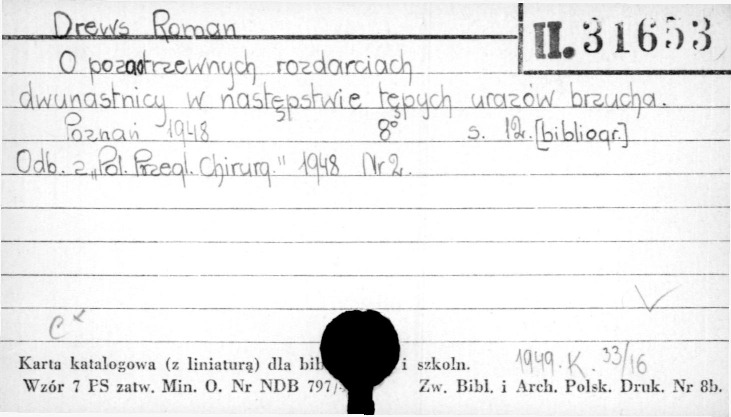 Drews Roman
II. 31653
O pozaotrzewnych rozdarciach
dwunastnicy w następstwie tępych urazów brzucha.
Poznań 1948 8° s. 12. [bibliogr.]
Odb. z „Pol. Przegl. Chirurg." 1948 Nr 2.
C
1949. K. 33/16
Karta katalogowa (z liniaturą) dla i szkoln.
Wzór 7 PS zatw. Min. O. Nr NDB 797/ Zw. Bibl. i Arch. Polsk. Druk. Nr 8b.